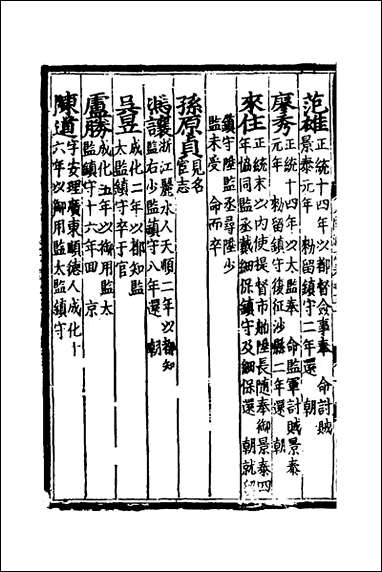 范雄正統十四年以都督僉事奉 命討賊
景泰元年 勅留鎮守二年還 朝
廖秀正統十四年以太監奉 命監軍討賊景泰
元年 勅留鎮守後征沙縣二年還 朝
來住正統末以內使提督市舶陞長隨奉御景泰四
年協同監丞戴細保鎮守及細保還 朝就留
鎮守陞監丞尋陞少
監未受 命而卒
孫原貞見名
宦志
馮讓浙江麗水人天順二年以都知
監右少監鎮守八年還 朝
吳昱成化二年以都知監
太監鎮守卒于官
盧勝成化五年以御用監太
監鎮守十六年回 京
陳道字安理廣東順德人成化十
六年以御用監太監鎮守